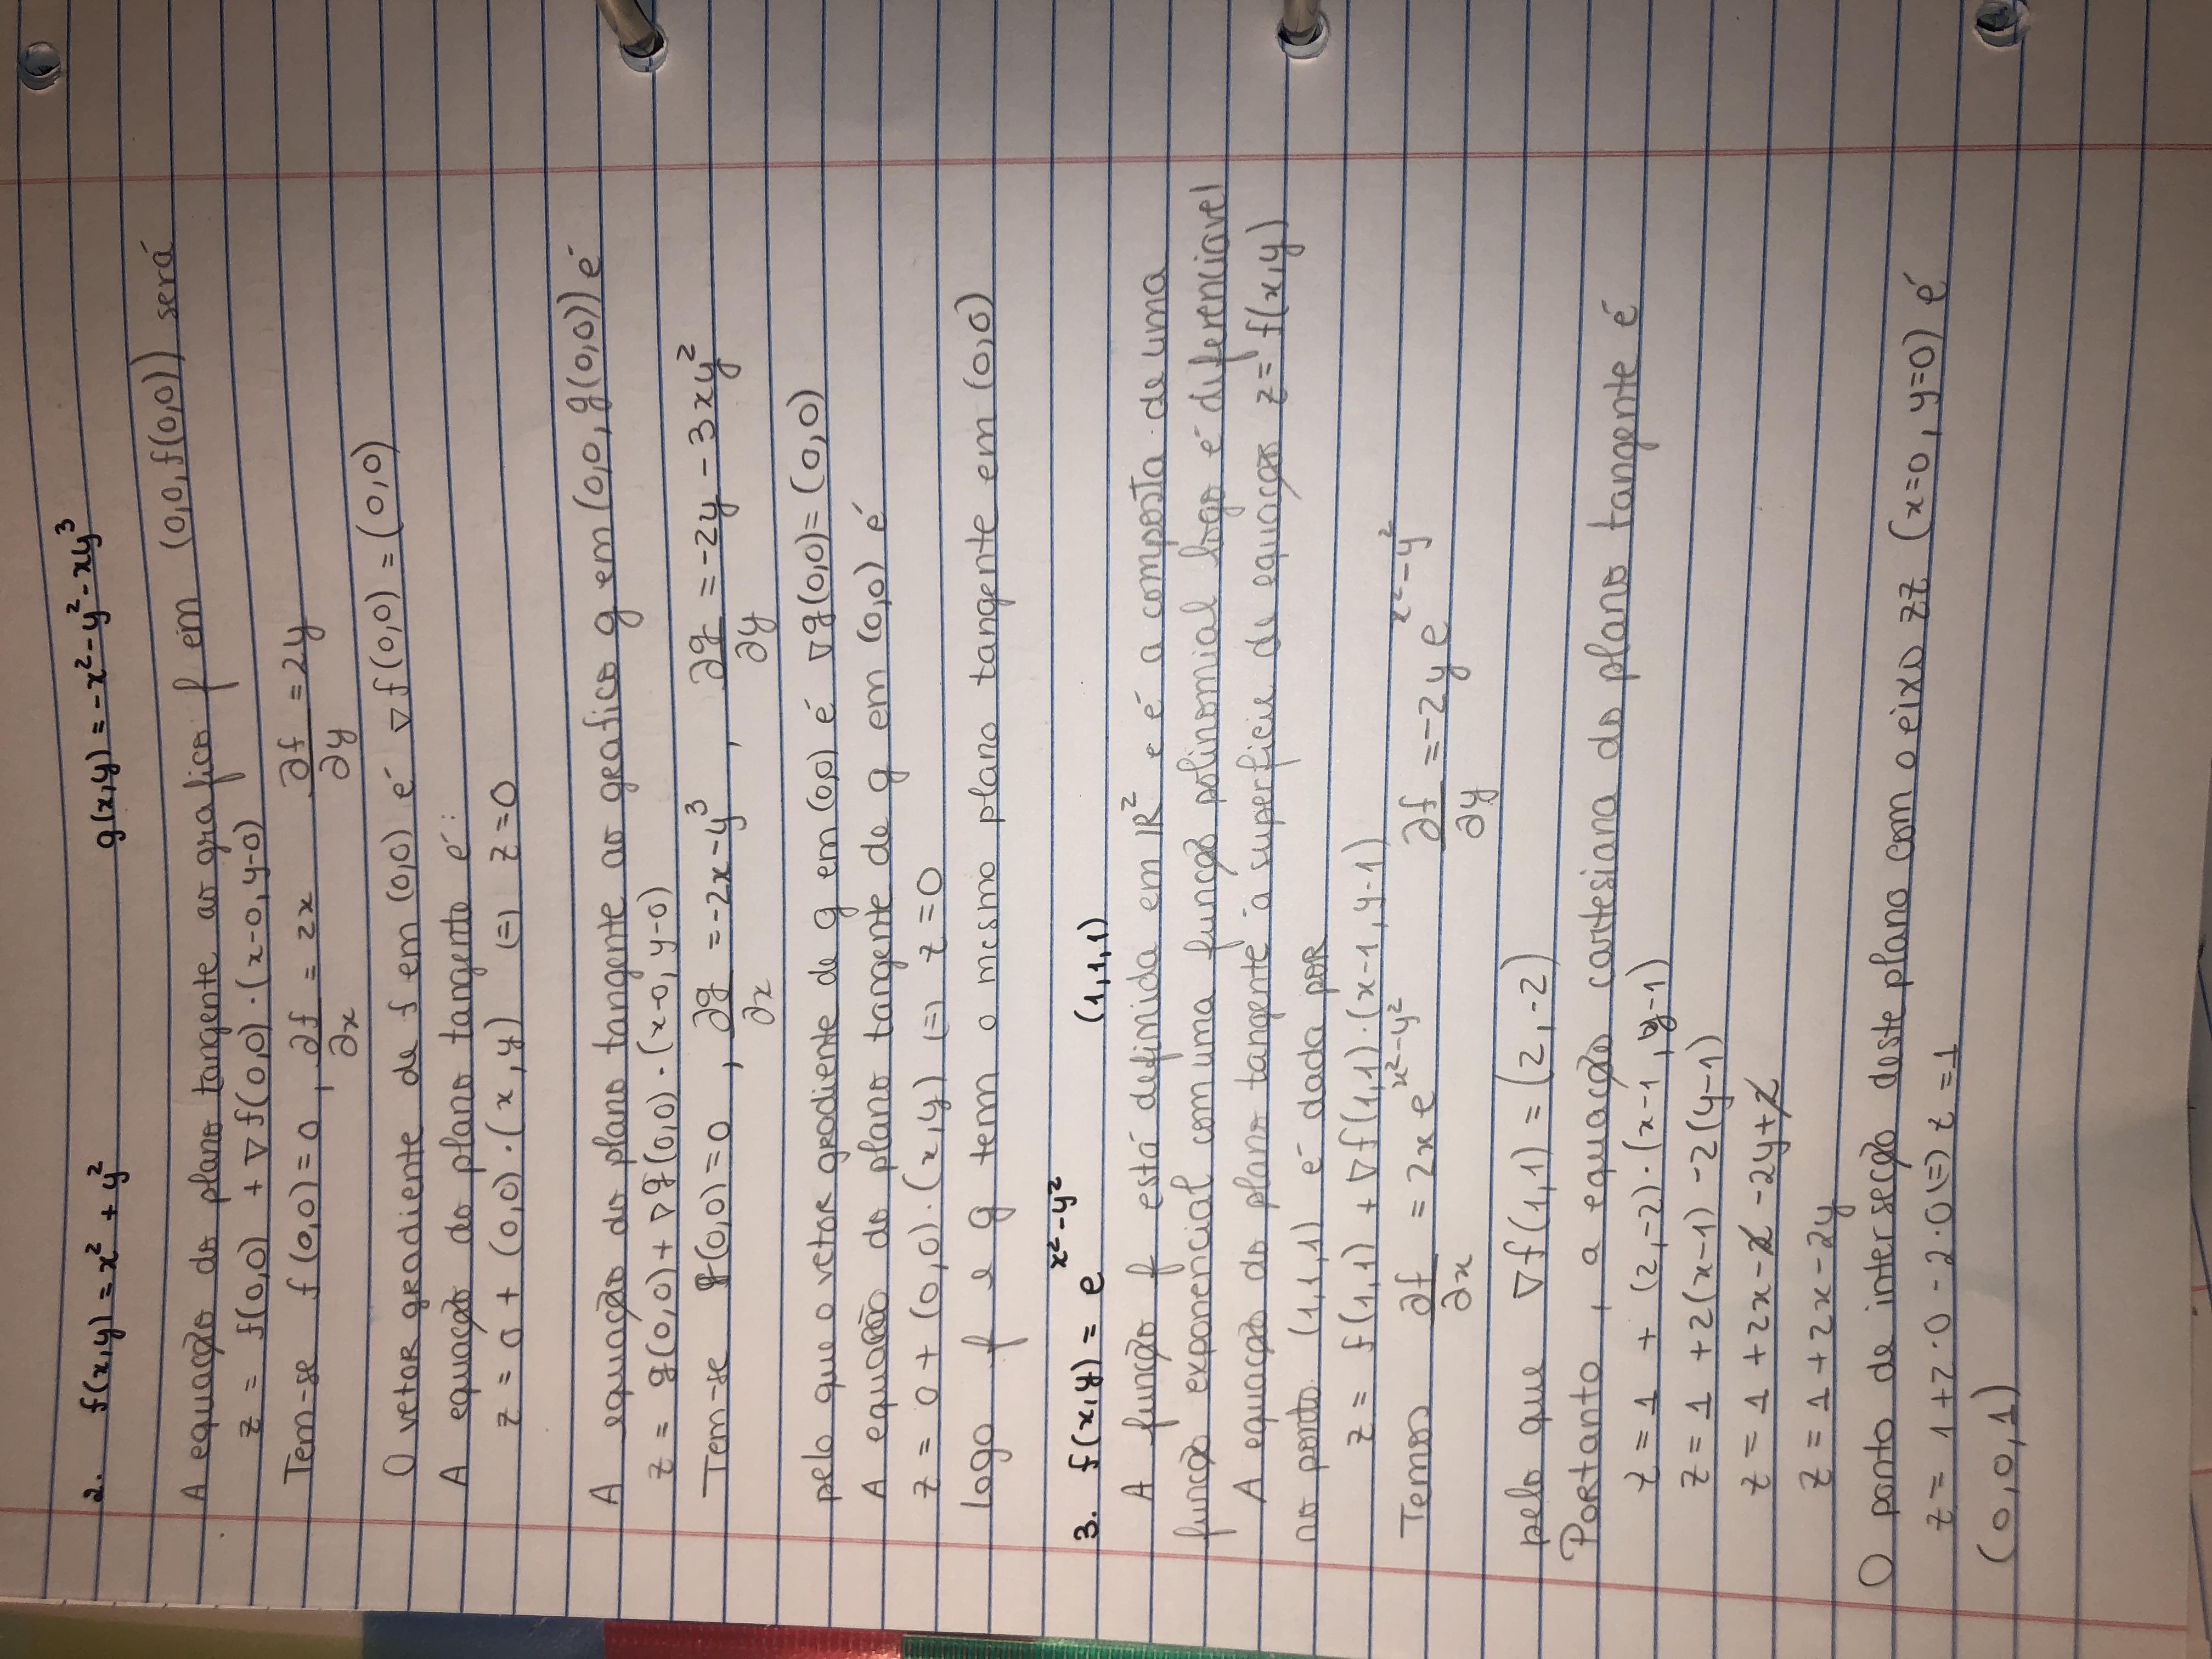 2. f(x,y) = x² + y² g(x,y) = -x² - y² - xy³
A equação do plano tangente ao grafico f em (0,0, f(0,0)) será
z = f(0,0) + ∇f(0,0) · (x-0, y-0)
Tem-se f(0,0) = 0, ∂f/∂x = 2x ∂f/∂y = 2y
O vetor gradiente de f em (0,0) é ∇f(0,0) = (0,0)
A equação do plano tangente é:
z = 0 + (0,0) · (x, y) (=) z = 0
A equação do plano tangente ao grafico g em (0,0, g(0,0)) é
z = g(0,0) + ∇g(0,0) · (x-0, y-0)
Tem-se g(0,0) = 0, ∂g/∂x = -2x - y³, ∂g/∂y = -2y - 3xy²
pelo que o vetor gradiente de g em (0,0) é ∇g(0,0) = (0,0)
A equação do plano tangente de g em (0,0) é
z = 0 + (0,0) · (x,y) (=) z = 0
logo f e g tem o mesmo plano tangente em (0,0)
3. f(x,y) = e^(x²-y²) (1,1,1)
A função f está definida em ℝ² e é a composta de uma
função exponencial com uma função polinomial logo é diferenciavel
A equação do plano tangente à superficie de equação z = f(x,y)
no ponto (1,1,1) é dada por
z = f(1,1) + ∇f(1,1) · (x-1, y-1)
Temos ∂f/∂x = 2x e^(x²-y²) ∂f/∂y = -2y e^(x²-y²)
pelo que ∇f(1,1) = (2,-2)
Portanto, a equação cartesiana do plano tangente é
z = 1 + (2,-2) · (x-1, y-1)
z = 1 + 2(x-1) - 2(y-1)
z = 1 + 2x - 2 - 2y + 2
z = 1 + 2x - 2y
O ponto de intersecção deste plano com o eixo zz (x=0, y=0) é
z = 1 + 2·0 - 2·0 (=) z = 1
(0,0,1)